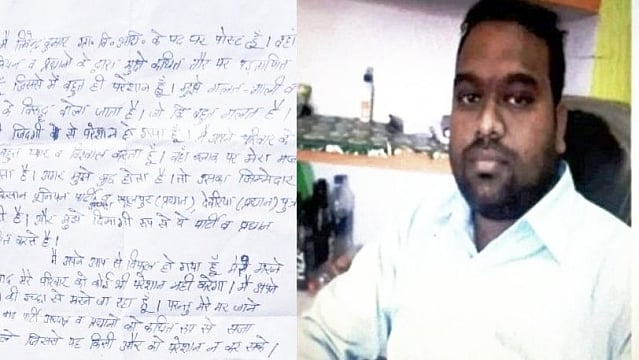 मैं जितेन्द्र कुमार ग्रा. वि. अधि. के पद पर पोस्ट हूँ। वहाँ
व प्रधानों के द्वारा मुझे कथित तौर पर
जिससे मैं बहुत ही परेशान हूँ। मुझे गलत-गाली व
के विरुद्ध बोला जाता है। जो कि बहुत गलत है।
जिंदगी से परेशान हो गया हूँ। मैं अपने परिवार के
बहुत प्यार व विश्वास करता हूँ। वहाँ ब्लाक पर मेरा
है। अगर मुझे कुछ होता है। तो उसका जिम्मेदार
किसान यूनियन पार्टी (प्रधान), देवरिया (प्रधान) पुत्र
है। और मुझे दिमागी रूप से ये पार्टी व प्रधान
करते हैं।
मैं अपने आप से विमुख हो गया हूँ मेरे मरने
बाद मेरे परिवार को कोई भी परेशान नहीं करेगा। मैं अपने
की इच्छा से मरने जा रहा हूँ। परन्तु मेरे मर जाने
बाद पार्टी अध्यक्ष व प्रधानों को कथित रूप से सजा
जिससे यह किसी और को परेशान न कर सके।